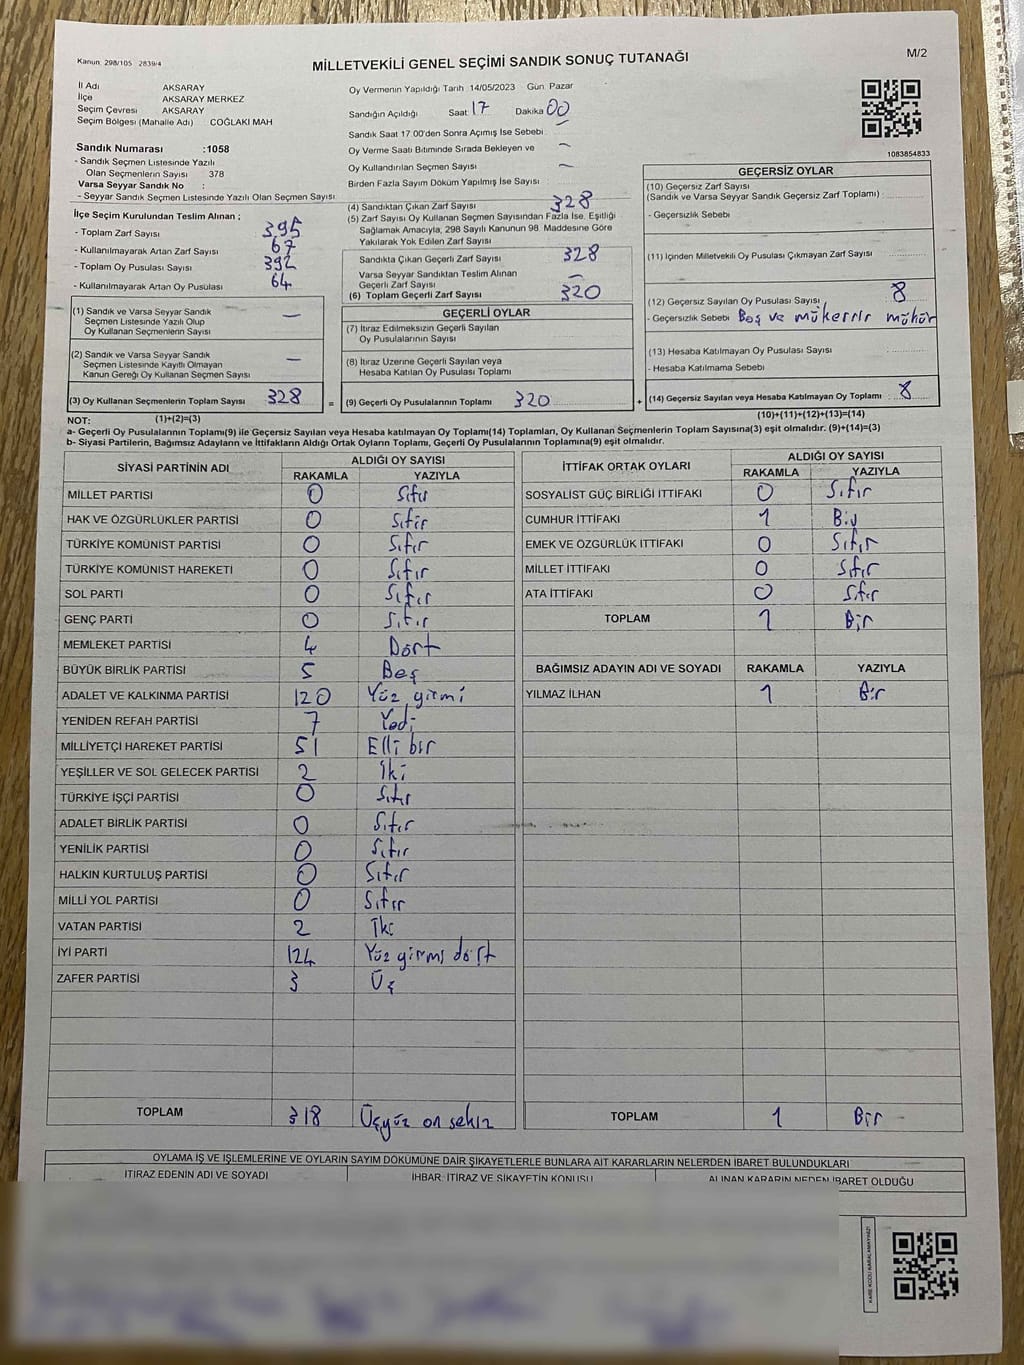 Kanun: 298/105 2839/4
MİLLETVEKİLİ GENEL SEÇİMİ SANDIK SONUÇ TUTANAĞI
M/2
İl Adı AKSARAY
İlçe AKSARAY MERKEZ
Seçim Çevresi AKSARAY
Seçim Bölgesi (Mahalle Adı) COĞLAKI MAH
Sandık Numarası :1058
- Sandık Seçmen Listesinde Yazılı
Olan Seçmenlerin Sayısı 378
Varsa Seyyar Sandık No :
- Seyyar Sandık Seçmen Listesinde Yazılı Olan Seçmen Sayısı
İlçe Seçim Kurulundan Teslim Alınan ;
- Toplam Zarf Sayısı 395
- Kullanılmayarak Artan Zarf Sayısı 67
- Toplam Oy Pusulası Sayısı 392
- Kullanılmayarak Artan Oy Pusulası 64
(1) Sandık ve Varsa Seyyar Sandık
Seçmen Listesinde Yazılı Olup
Oy Kullanan Seçmenlerin Sayısı —
(2) Sandık ve Varsa Seyyar Sandık
Seçmen Listesinde Kayıtlı Olmayan
Kanun Gereği Oy Kullanan Seçmen Sayısı —
(3) Oy Kullanan Seçmenlerin Toplam Sayısı 328 =
Oy Vermenin Yapıldığı Tarih 14/05/2023 Gün Pazar
Sandığın Açıldığı Saat 17 Dakika 00
Sandık Saat 17.00'den Sonra Açımış İse Sebebi
Oy Verme Saati Bitiminde Sırada Bekleyen ve —
Oy Kullandırılan Seçmen Sayısı —
Birden Fazla Sayım Döküm Yapılmış İse Sayısı
(4) Sandıktan Çıkan Zarf Sayısı 328
(5) Zarf Sayısı Oy Kullanan Seçmen Sayısından Fazla İse, Eşitliği
Sağlamak Amacıyla; 298 Sayılı Kanunun 98. Maddesine Göre
Yakılarak Yok Edilen Zarf Sayısı
Sandıkta Çıkan Geçerli Zarf Sayısı 328
Varsa Seyyar Sandıktan Teslim Alınan
Geçerli Zarf Sayısı —
(6) Toplam Geçerli Zarf Sayısı 320
GEÇERLİ OYLAR
(7) İtiraz Edilmeksizin Geçerli Sayılan
Oy Pusulalarının Sayısı
(8) İtiraz Üzerine Geçerli Sayılan veya
Hesaba Katılan Oy Pusulası Toplamı
(9) Geçerli Oy Pusulalarının Toplamı 320 +
1083854833
GEÇERSİZ OYLAR
(10) Geçersiz Zarf Sayısı
(Sandık ve Varsa Seyyar Sandık Geçersiz Zarf Toplamı)
- Geçersizlik Sebebi
(11) İçinden Milletvekili Oy Pusulası Çıkmayan Zarf Sayısı
(12) Geçersiz Sayılan Oy Pusulası Sayısı 8
- Geçersizlik Sebebi Boş ve mükerrir mühür
(13) Hesaba Katılmayan Oy Pusulası Sayısı
- Hesaba Katılmama Sebebi
(14) Geçersiz Sayılan veya Hesaba Katılmayan Oy Pusulası Toplamı 8
NOT: (1)+(2)=(3) (10)+(11)+(12)+(13)=(14)
a- Geçerli Oy Pusulasının Toplamı(9) ile Geçersiz Sayılan veya Hesaba katılmayan Oy Pusulası Toplamı(14) Toplamları, Oy Kullanan Seçmenlerin Toplam Sayısısına(3) eşit olmalıdır. (9)+(14)=(3)
b- Siyasi Partilerin, Bağımsız Adayların ve İttifakların Aldığı Ortak Oyların Toplamı, Geçerli Oy Pusulalarının Toplamına(9) eşit olmalıdır.
SİYASİ PARTİNİN ADI ALDIĞI OY SAYISI
RAKAMLA YAZIYLA
MİLLET PARTİSİ 0 Sıfır
HAK VE ÖZGÜRLÜKLER PARTİSİ 0 Sıfır
TÜRKİYE KOMÜNİST PARTİSİ 0 Sıfır
TÜRKİYE KOMÜNİST HAREKETİ 0 Sıfır
SOL PARTİ 0 Sıfır
GENÇ PARTİ 0 Sıfır
MEMLEKET PARTİSİ 4 Dört
BÜYÜK BİRLİK PARTİSİ 5 Beş
ADALET VE KALKINMA PARTİSİ 120 Yüz girmi
YENİDEN REFAH PARTİSİ 7 Yedi
MİLLİYETÇİ HAREKET PARTİSİ 51 Elli bir
YEŞİLLER VE SOL GELECEK PARTİSİ 2 İki
TÜRKİYE İŞÇİ PARTİSİ 0 Sıfır
ADALET BİRLİK PARTİSİ 0 Sıfır
YENİLİK PARTİSİ 0 Sıfır
HALKIN KURTULUŞ PARTİSİ 0 Sıfır
MİLLİ YOL PARTİSİ 0 Sıfır
VATAN PARTİSİ 2 İki
İYİ PARTİ 124 Yüz girmi dört
ZAFER PARTİSİ 3 Üç
TOPLAM 318 Üçyüz on sekiz
İTTİFAK ORTAK OYLARI ALDIĞI OY SAYISI
RAKAMLA YAZIYLA
SOSYALİST GÜÇ BİRLİĞİ İTTİFAKI 0 Sıfır
CUMHUR İTTİFAKI 1 Bir
EMEK VE ÖZGÜRLÜK İTTİFAKI 0 Sıfır
MİLLET İTTİFAKI 0 Sıfır
ATA İTTİFAKI 0 Sıfır
TOPLAM 1 Bir
BAĞIMSIZ ADAYIN ADI VE SOYADI RAKAMLA YAZIYLA
YILMAZ İLHAN 1 Bir
TOPLAM 1 Bir
OYLAMA İŞ VE İŞLEMLERİNE VE OYLARIN SAYIM DÖKÜMÜNE DAİR ŞİKAYETLERLE BUNLARA AİT KARARLARIN NELERDEN İBARET BULUNDUKLARI
İTİRAZ EDENİN ADI VE SOYADI İHBAR, İTİRAZ VE ŞİKAYETİN KONUSU ALINAN KARARIN NEDEN İBARET OLDUĞU